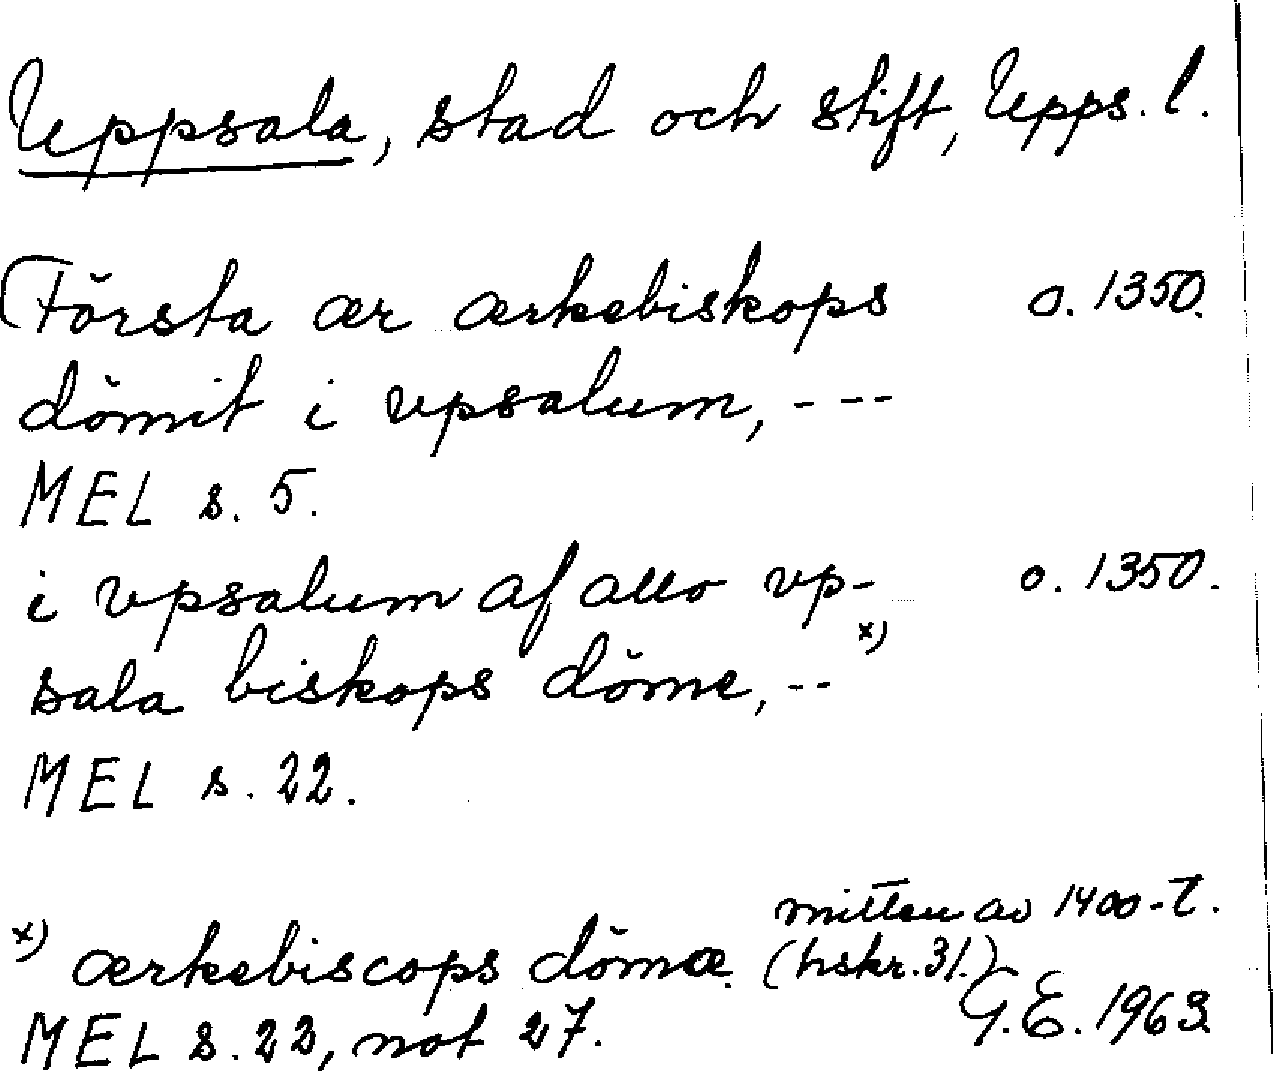 Uppsala, stad och stift, Upps. l.
Första ær ærkebiskops o. 1350.
dömit i vpsalum, ---
MEL s. 5.
i vpsalum af allo vp- o. 1350.
sala biskops döme, -- x)
MEL s. 22.
mitten av 1400-t.
x) ærkebiscops dömæ (hskr. 31.)
MEL s. 22, not 27. G.E. 1963.